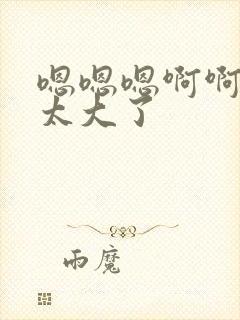 嗯嗯嗯啊啊
太大了
雨魔